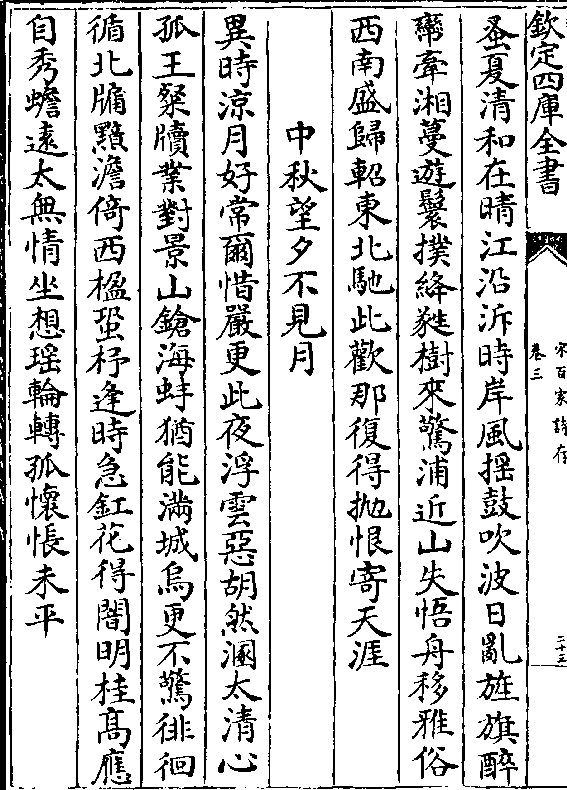 欽定四庫全書
宋百家詩存
卷三
二十三
蚤夏清和在晴江沿泝時岸風揺鼓吹波日亂旌旗醉
纜牽湘蔓遊鬟撲絳蕤樹來驚浦近山失悟舟移雅俗
西南盛歸軺東北馳此歡那復得抛恨寄天涯
中秋望夕不見月
異時涼月好常爾惜嚴更此夜浮雲惡胡然溷太清心
孤王粲牘業對景山鎗海蚌猶能滿城烏更不驚徘徊
循北牖黯澹倚西楹蛩杼逢時急釭花得闇明桂髙應
自秀蟾遠太無情坐想瑶輪轉孤懷悵未平